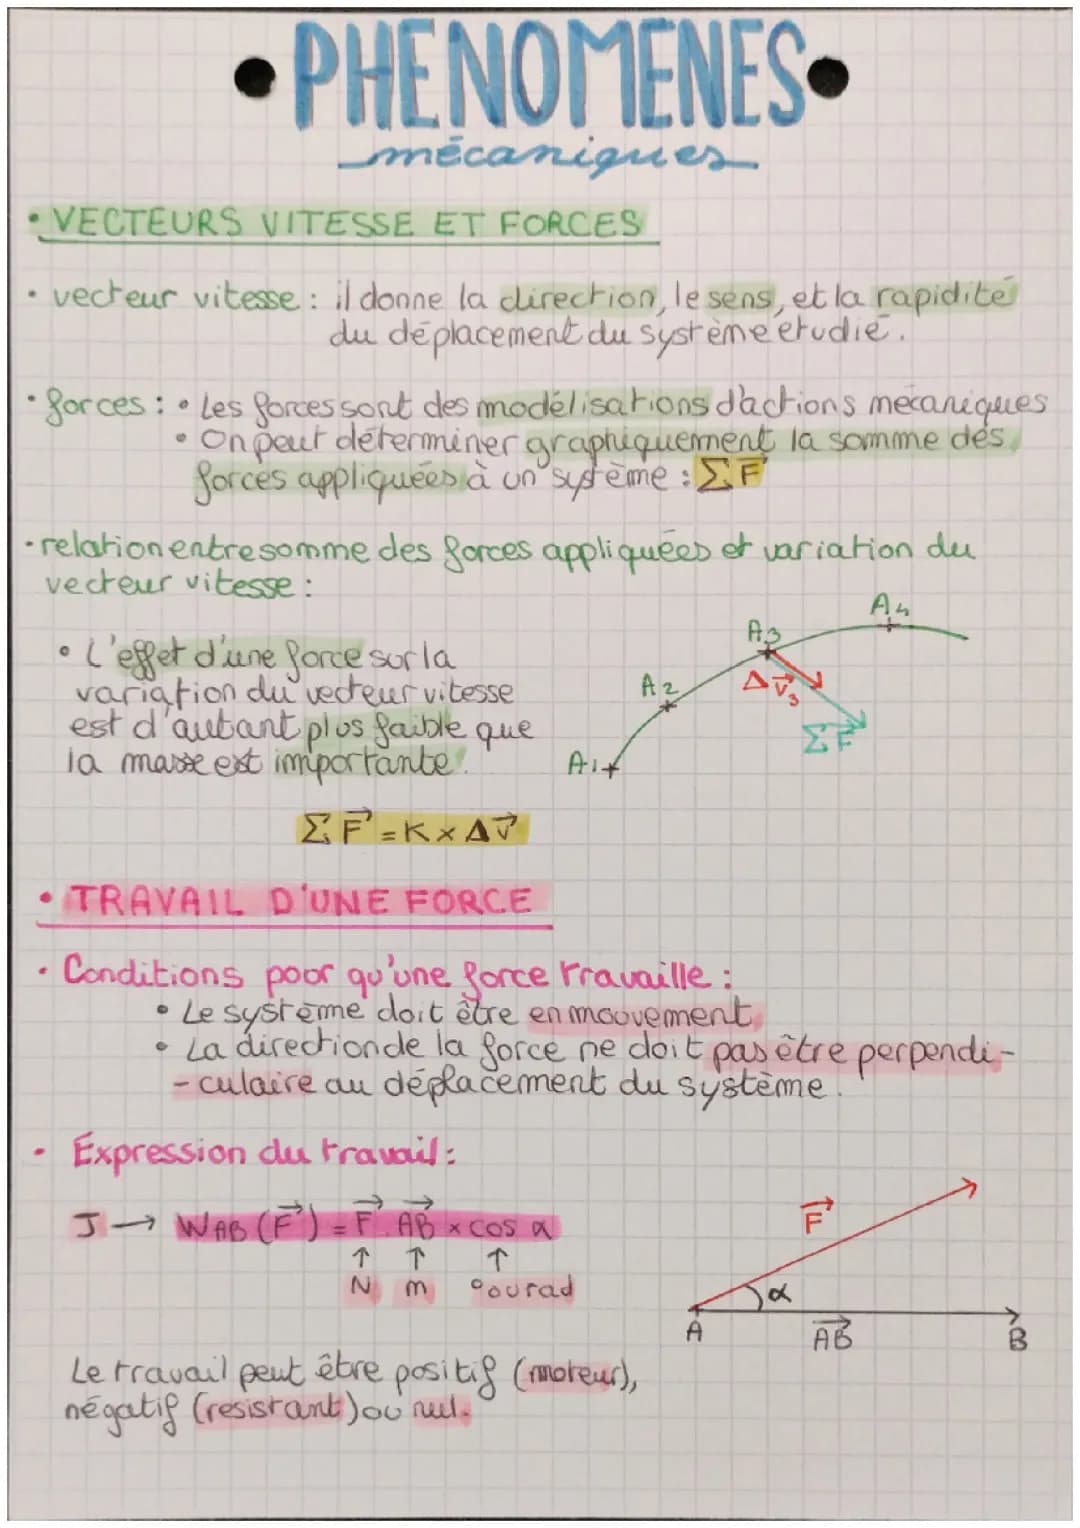 • PHENOMENES •
mécaniques
• VECTEURS VITESSE ET FORCES
• vecteur vitesse : il donne la direction, le sens, et la rapidité
du déplacement du système etudié.
• forces : • Les forces sont des modélisations d'actions mécaniques
• On peut déterminer graphiquement la somme des
forces appliquées à un système : ΣF⃗
• relation entre somme des forces appliquées et variation du
vecteur vitesse :
• L'effet d'une force sur la
variation du vecteur vitesse
est d'autant plus faible que
la masse est importante.
A1
A2
A3
A4
Δv⃗3
ΣF⃗
ΣF⃗ = K × Δv⃗
• TRAVAIL D'UNE FORCE
• Conditions pour qu'une force travaille :
• Le système doit être en mouvement
• La direction de la force ne doit pas être perpendi-
-culaire au déplacement du système.
• Expression du travail :
J → WAB (F⃗) = F⃗. AB⃗ × cos α
↑ ↑ ↑
N m ° ou rad
F⃗
α
A AB⃗ B
Le travail peut être positif (moteur),
négatif (resistant) ou nul.